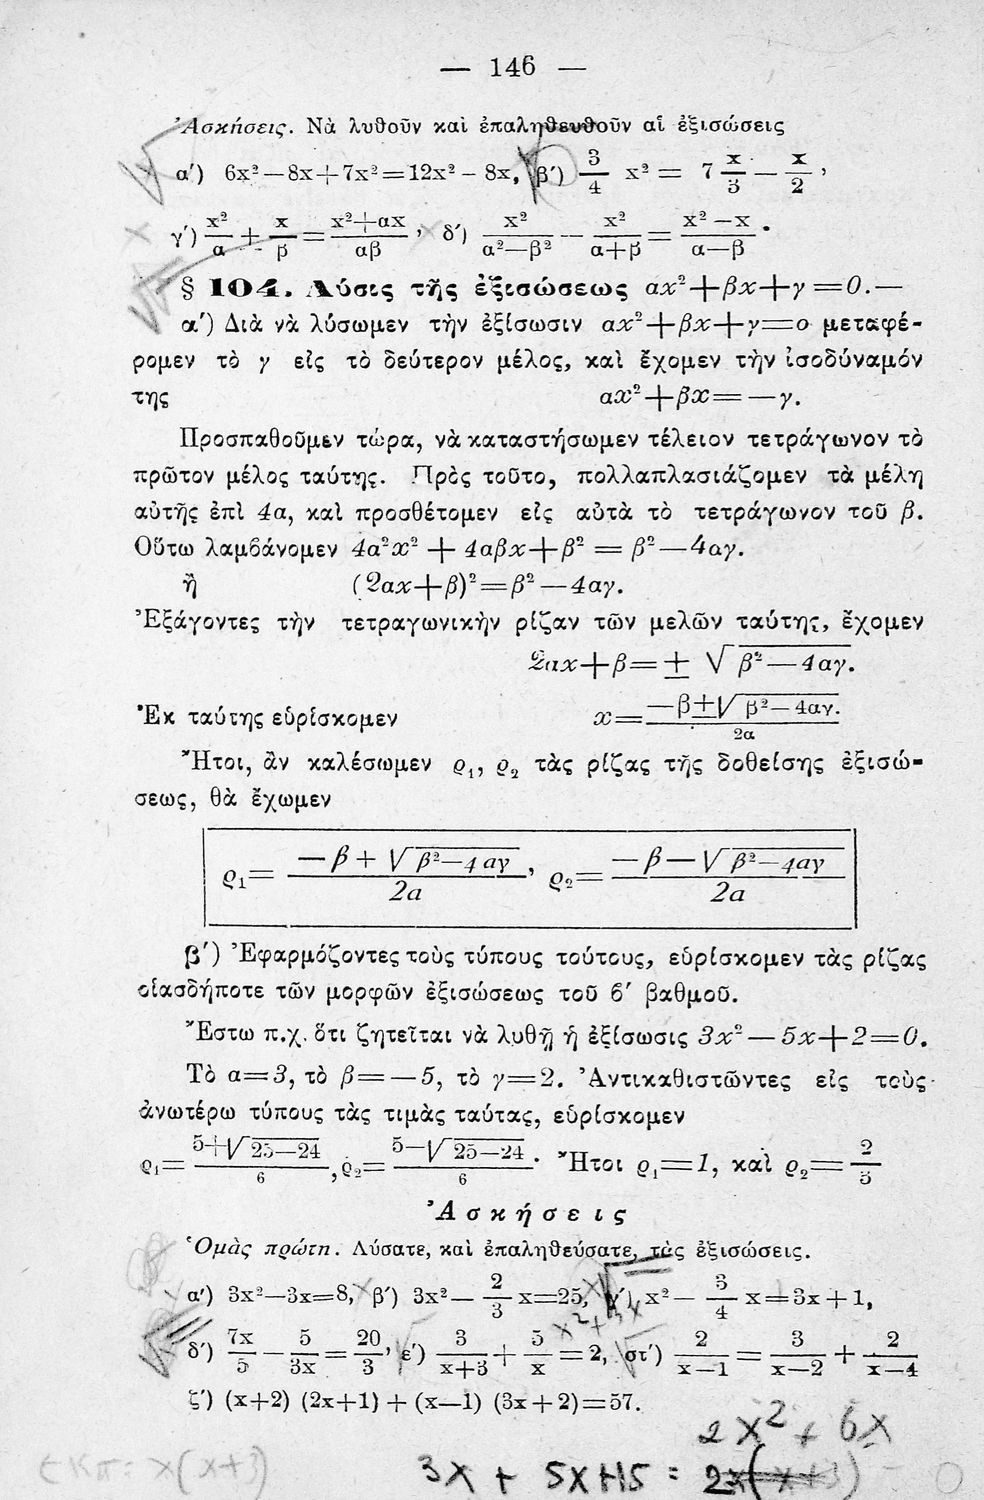 — 146 —
Ἀσκήσεις. Νὰ λυθοῦν καὶ ἐπαληθευθοῦν αἱ ἐξισώσεις
α') 6x²—8x+7x²=12x²– 8x, β') 3/4 x² = 7 x/3 — x/2,
γ') x²/α + x/β = x²+αx/αβ, δ') x²/α²—β² — x²/α+β = x²—x/α—β.
§ 104. Λύσις τῆς ἐξισώσεως αx²+βx+γ=0.—
α') Διὰ νὰ λύσωμεν τὴν ἐξίσωσιν αx²+βx+γ=ο μεταφέ-
ρομεν τὸ γ εἰς τὸ δεύτερον μέλος, καὶ ἔχομεν τὴν ἰσοδύναμόν
της αx²+βx=—γ.
Προσπαθοῦμεν τώρα, νὰ καταστήσωμεν τέλειον τετράγωνον τὸ
πρῶτον μέλος ταύτης. Πρὸς τοῦτο, πολλαπλασιάζομεν τὰ μέλη
αὐτῆς ἐπὶ 4α, καὶ προσθέτομεν εἰς αὐτὰ τὸ τετράγωνον τοῦ β.
Οὕτω λαμβάνομεν 4α²x² + 4αβx+β² = β²—4αγ.
ἢ (2αx+β)²=β²—4αγ.
Ἐξάγοντες τὴν τετραγωνικὴν ρίζαν τῶν μελῶν ταύτης, ἔχομεν
2αx+β=± √β²—4αγ.
Ἐκ ταύτης εὑρίσκομεν x=—β±√β²—4αγ./2α
Ἤτοι, ἂν καλέσωμεν ϱ₁, ϱ₂ τὰς ρίζας τῆς δοθείσης ἐξισώ-
σεως, θὰ ἔχωμεν
ϱ₁= —β+√β²—4αγ/2α, ϱ₂= —β—√β²—4αγ/2α
β') Ἐφαρμόζοντες τοὺς τύπους τούτους, εὑρίσκομεν τὰς ρίζας
οἱασδήποτε τῶν μορφῶν ἐξισώσεως τοῦ ϐ' βαθμοῦ.
Ἔστω π.χ. ὅτι ζητεῖται νὰ λυθῇ ἡ ἐξίσωσις 3x²—5x+2=0.
Τὸ α=3, τὸ β=—5, τὸ γ=2. Ἀντικαθιστῶντες εἰς τοὺς
ἀνωτέρω τύπους τὰς τιμὰς ταύτας, εὑρίσκομεν
ϱ₁= 5+√25—24/6, ϱ₂= 5—√25—24/6. Ἤτοι ϱ₁=1, καὶ ϱ₂= 2/3
Ἀσκήσεις
Ὁμὰς πρώτη. Λύσατε, καὶ ἐπαληθεύσατε, τὰς ἐξισώσεις.
α') 3x²—3x=8, β') 3x²— 2/3 x=25, γ') x²— 3/4 x=3x+1,
δ') 7x/5 — 5/3x = 20/3, ε') 3/x+3 + 5/x = 2, στ') 2/x—1 = 3/x—2 + 2/x—4
ζ') (x+2) (2x+1) + (x—1) (3x+2)=57.
2x² + 6x
εκπ: x(x+3) 3x + 5x+15 = 2x(x+3)